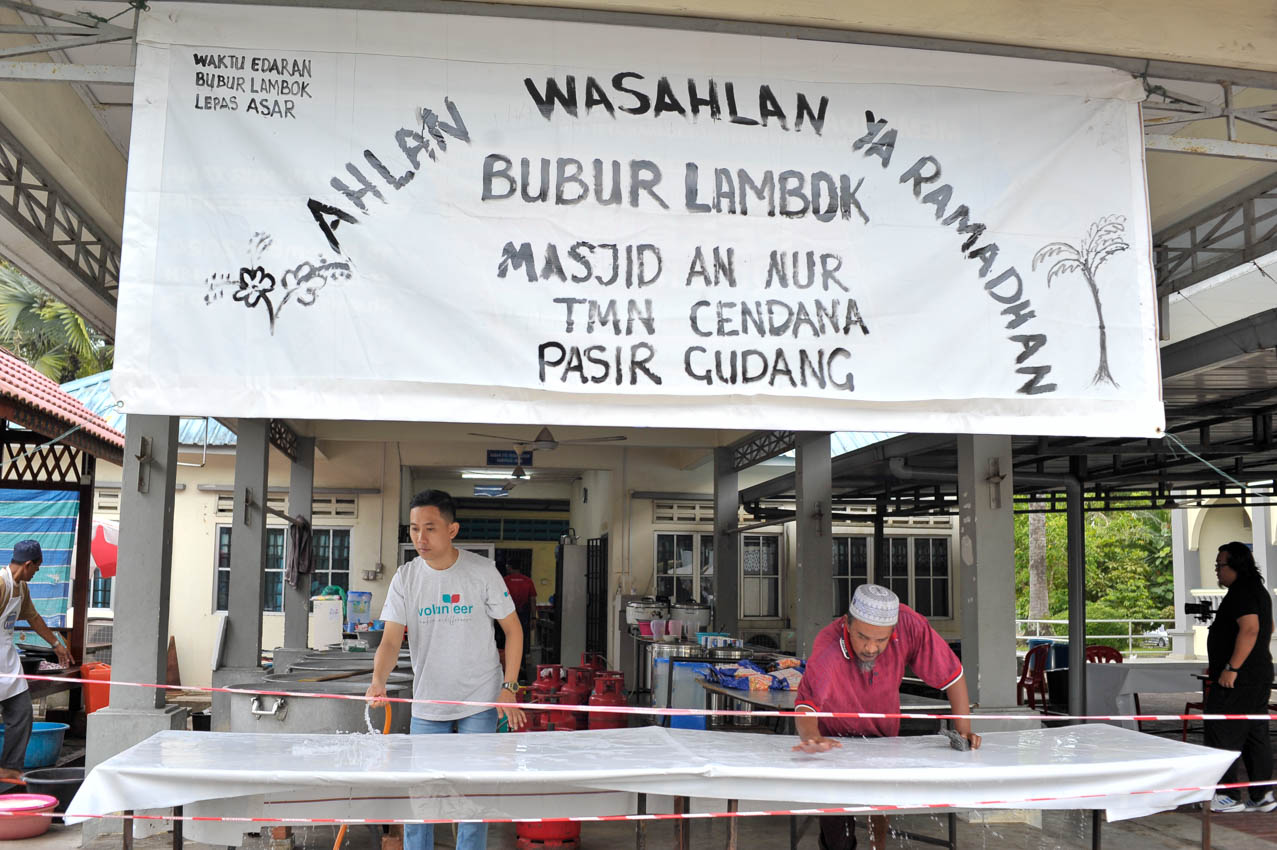 WAKTU EDARAN
BUBUR LAMBOK
LEPAS ASAR
AHLAN WASAHLAN YA RAMADHAN
BUBUR LAMBOK
MASJID AN NUR
TMN CENDANA
PASIR GUDANG
volunteer